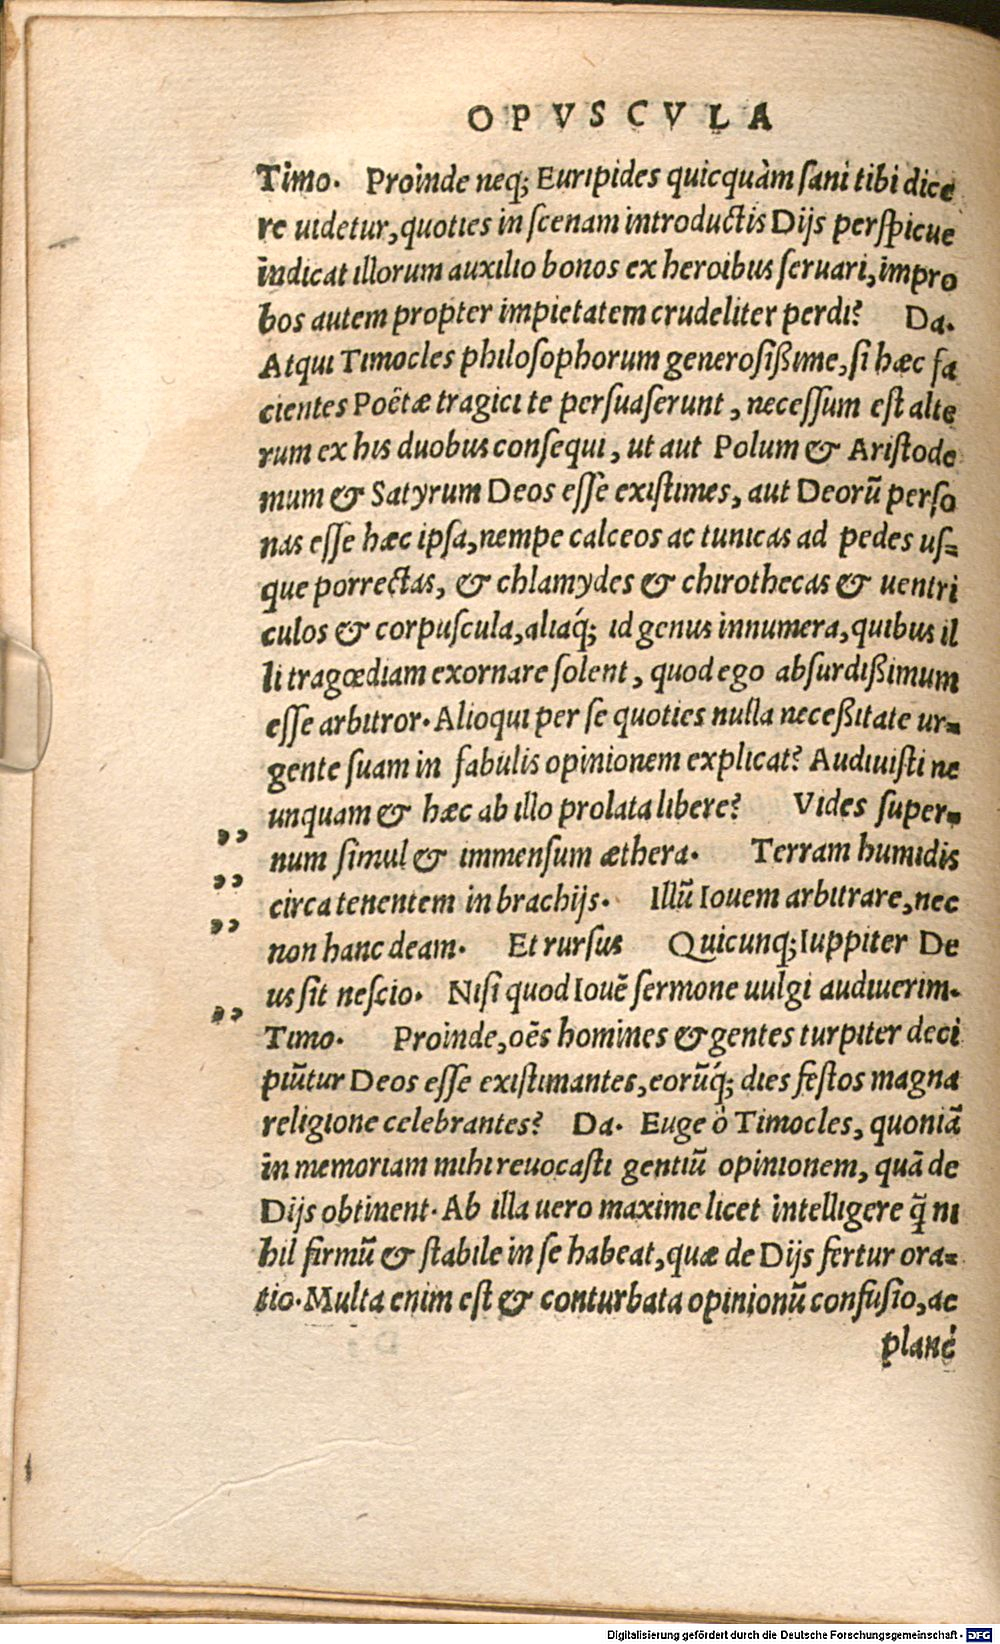 OPVSCVLA
Timo. Proinde neq; Euripides quicquàm sani tibi dice
re uidetur, quoties in scenam introductis Dijs perspicue
indicat illorum auxilio bonos ex heroibus seruari, impro
bos autem propter impietatem crudeliter perdi? Da.
Atqui Timocles philosophorum generosißime, si hæc fa
cientes Poëtæ tragici te persuaserunt, necessum est alte
rum ex his duobus consequi, ut aut Polum & Aristode
mum & Satyrum Deos esse existimes, aut Deorũ perso
nas esse hæc ipsa, nempe calceos ac tunicas ad pedes us=
que porrectas, & chlamydes & chirothecas & uentri
culos & corpuscula, aliaq́; id genus innumera, quibus il
li tragœdiam exornare solent, quod ego absurdißimum
esse arbitror. Alioqui per se quoties nulla neceßitate ur=
gente suam in fabulis opinionem explicat? Audiuisti ne
unquam & hæc ab illo prolata libere? Vides super=
„ num simul & immensum æthera. Terram humidis
„ circa tenentem in brachijs. Illũ Iouem arbitrare, nec
„ non hanc deam. Et rursus Quicunq; Iuppiter De
us sit nescio. Nisi quod Iouẽ sermone uulgi audiuerim.
„ Timo. Proinde, oẽs homines & gentes turpiter deci
piũtur Deos esse existimantes, eorũq́; dies festos magna
religione celebrantes? Da. Euge ô Timocles, quoniã
in memoriam mihi reuocasti gentiũ opinionem, quã de
Dijs obtinent. Ab illa uero maxime licet intelligere q̃ ni
hil firmũ & stabile in se habeat, quæ de Dijs fertur ora=
tio. Multa enim est & conturbata opinionũ confusio, ac
planè
Digitalisierung gefördert durch die Deutsche Forschungsgemeinschaft - DFG